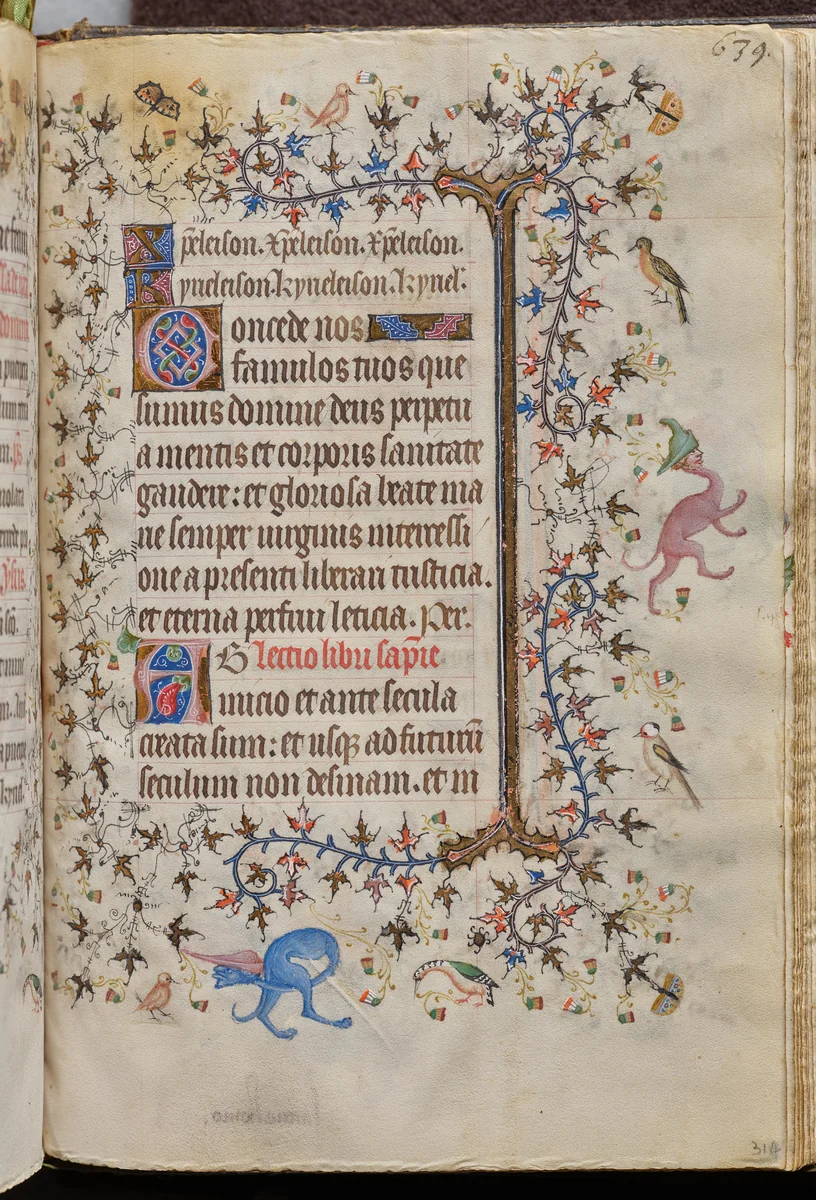 639.
Xp̄eleison. Xp̄eleison. Xp̄eleison.
Kyrieleison. kyrieleison. kyriel'.
Concede nos
famulos tuos que
sumus domine deus perpetu
a mentis et corporis sanitate
gaudere: et gloriosa beate ma
rie semper uirginis intercessi
one a presenti liberari tristicia.
et eterna perfrui leticia. Per.
lectio libri sapr̄e
Ab inicio et ante secula
creata sum: et usqꝫ ad futurū
seculum non desinam. et in
314